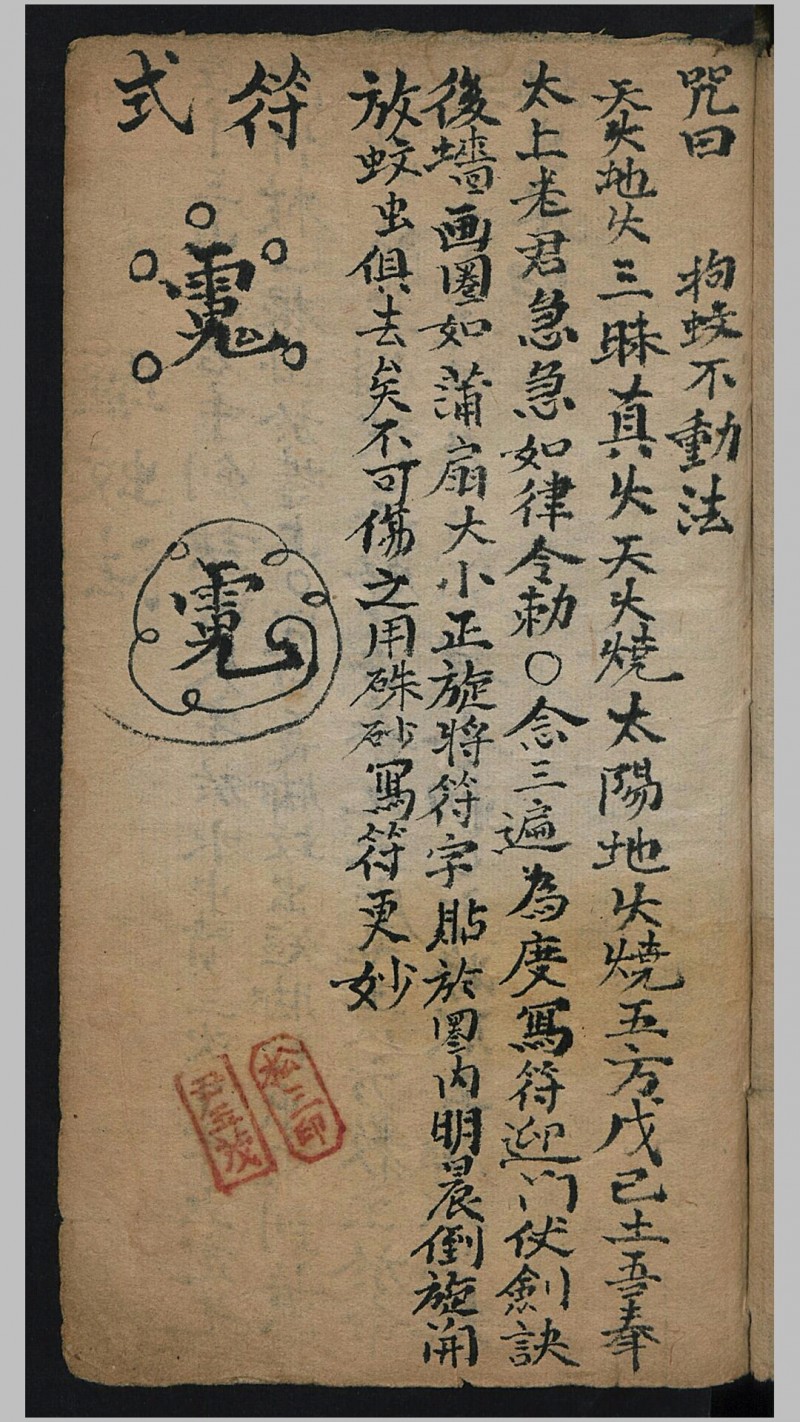 咒曰　拘蚊不動法
天火地火三昧真火天火燒太陽地火燒五方戊己土吾奉
太上老君急急如律令勅〇念三遍為度寫符迎門仗劍訣
後墻画圈如蒲扇大小正旋將符字貼於圈内明晨倒旋開
放蚊虫俱去矣不可傷之用硃砂寫符更妙
符式